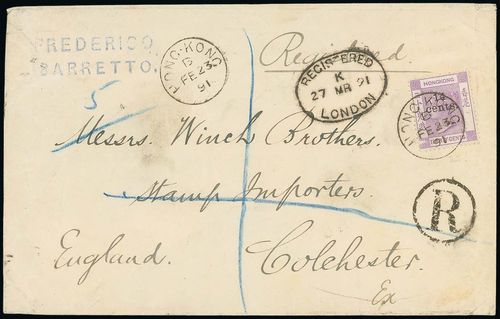 FREDERICO
BARRETTO.
HONG-KONG
B
FE 23
91
Registered
REGISTERED
K
27 MR 91
LONDON
HONGKONG
14
cents.
HONG-KONG
B
FE 23
91
5
Messrs. Winch Brothers.
Stamp Importers.
R
England.
Colchester.
Ex